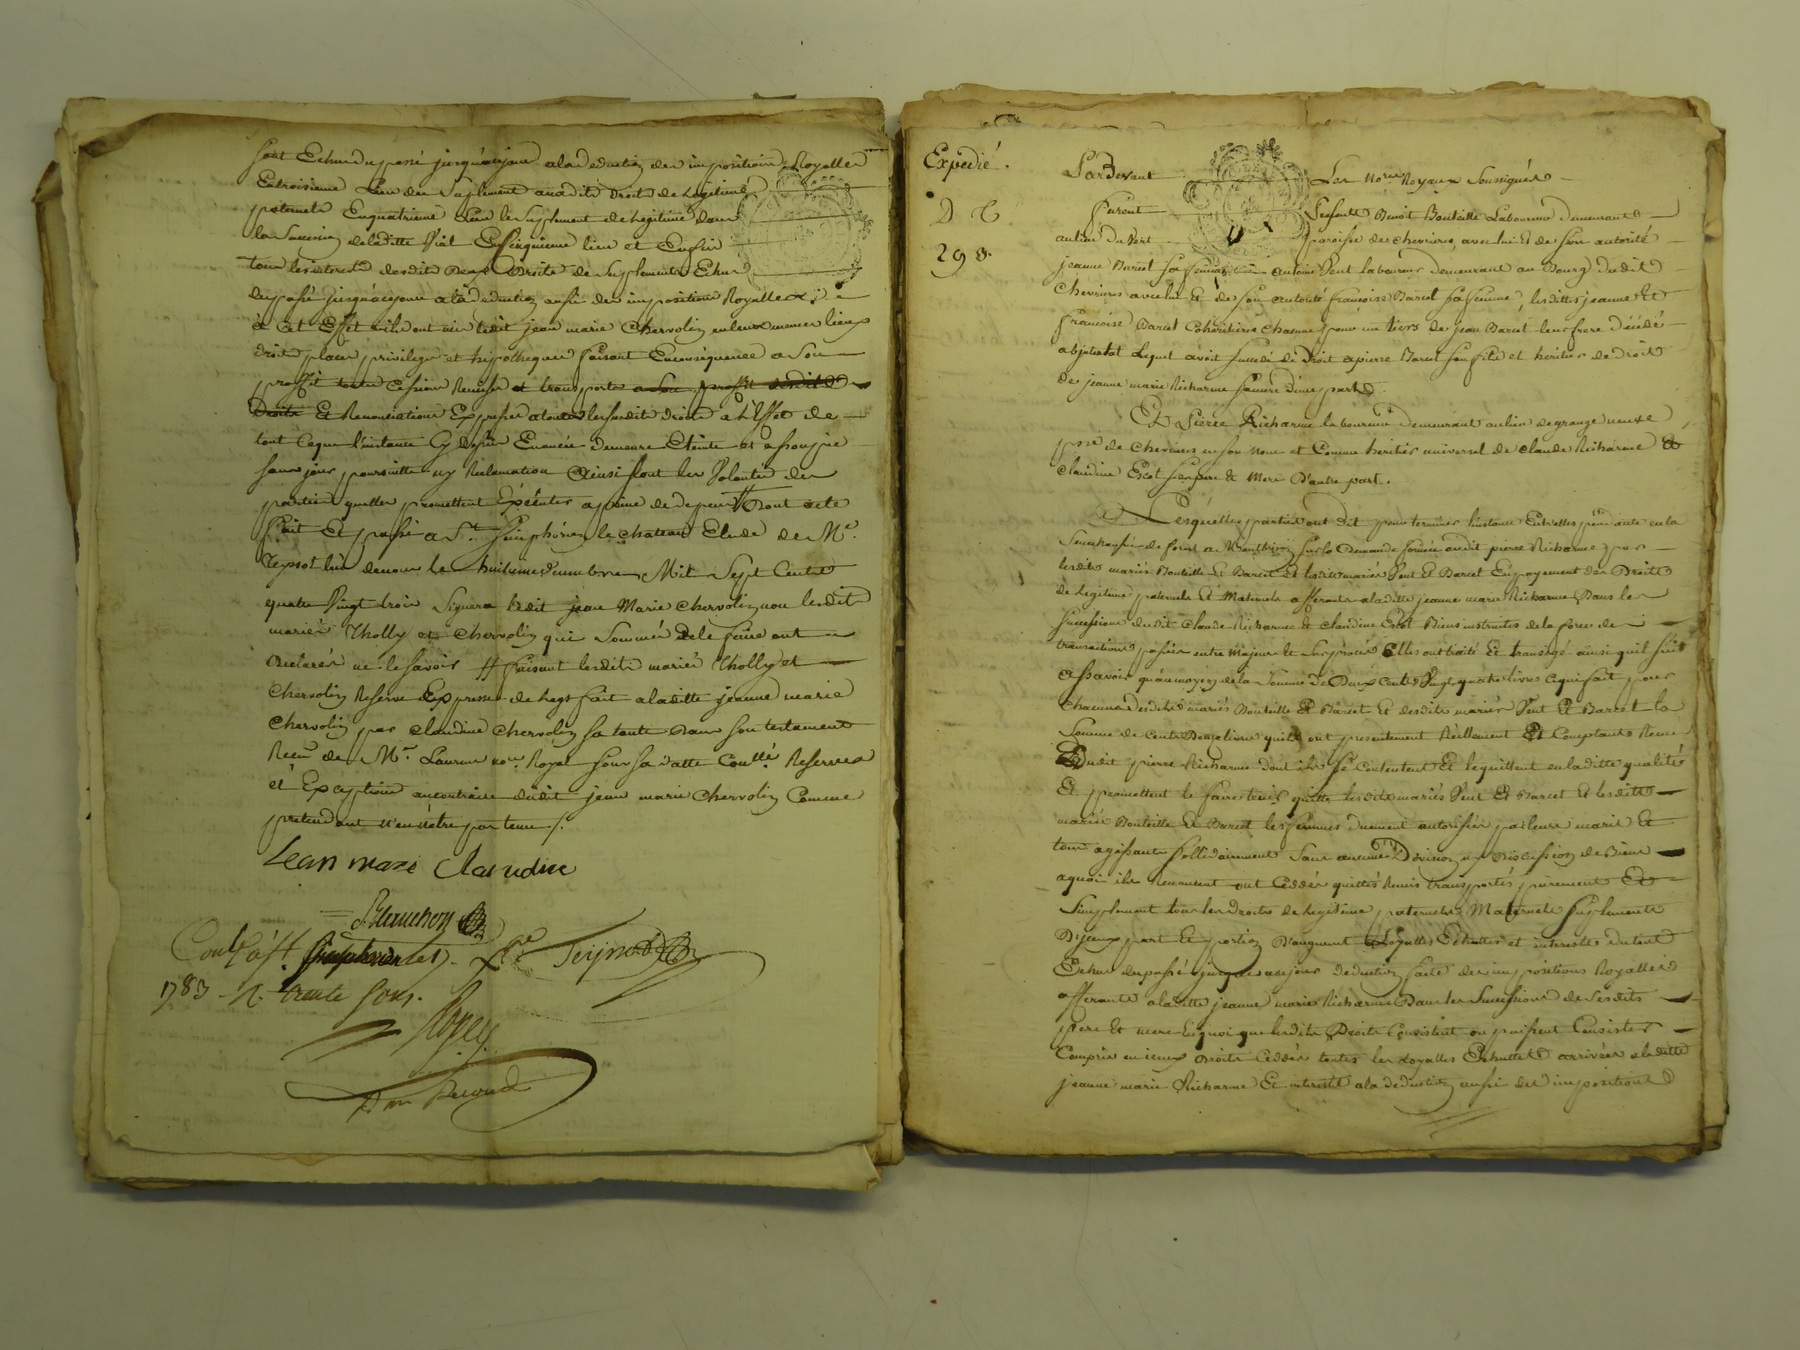 sont Echus du passé jusqu'acejour ala deduction des impositions Royalles
Entroisieme Lieu des Suplement auxdits Droits de Legitime
paternels Enquatrieme Lieu le Suplement de Legitime dans
la Succession deladitte Vial Encinquieme lieu et Enfin
tous les interests desdits Deux Droits de Suplements Echus
dupassé jusqu'acejour ala deduction aussi des impositions Royalles
à cet Effet ils ont mis ledit jean marie Chervolin enleurs memes lieux
droits places privileges et hipotheques faisant Enconséquence a son
proffit toutte Cession Remise et transports a son proffit desdits
Droits Et Renonciations Expresses a tous lesdits droits a L'Effet de
tout Ceque l'instance Cy dessus Enoncée demeure Eteinte et assoupie
sans pouvoir poursuitte ny Reclamation Ainsi sont les Volontés des
parties quelles promettent Exécuter apeine de depens # Dont acte
fait Et passé a St Simphorien le chateau Etude de Me
Teyssot l'un denous le huitieme decembre Mil Sept Cents
quatre Vingt trois Signera ledit jean Marie Chervolin non lesdits
mariés Tholly et Chervolin qui Sommés dele faire ont
declarés ne le Savoir # faisant lesdits mariés Tholly et
Chervolin Reserve Expresse du legs fait aladitte jeanne marie
Chervolin par claudine Chervolin sa tante dans son testament
Recu de Me Laurent nore Royal sous sa datte Contllé Reserves
et Exceptions aucontraire dudit jean marie Chervolin Comme
pretendant n'en n'être pas tenu /.
Jean marie
Blanchon
Contlé à St Simphorien le
1783 - R. trente sous.
Expedié.
Pardevant Les Nores Royaux Soussignés
furent Benoit Bouteille Laboureur demeurant
aulieu du Vert paroisse de chevrieres avec lui Et de son autorité
jeanne Barcet sa femme antoine Vent laboureur demeurant au Bourg dudit
Chevrieres avec lui Et de son autorité francoise Barcet Sa femme, lesdittes jeanne Et
francoise Barcet Cohéritieres chacune pour un tiers de jean Barcet leur frere décédé
abjntestat Lequel avoit succédé de Droit apierre Barcet son fils et heritier de droit
de jeanne marie Richarme sa mere d'une part
Et Pierre Richarme laboureur demeurant aulieu de grange neuve
psse de Chevrieres en son nom et Comme heritier universel de claude Richarme Et
Claudine Escot ses pere Et Mere D'autre part.
Lesquelles parties ont dit pour terminer linstance Entrelles pendante en la
Senechaussée de forest a Montbrison sur la Demande formée audit pierre Richarme par
lesdits mariés Bouteille Et Barcet Et lesdits mariés Vent Et Barcet Enpayement des Droits
de Legitime paternels Et Maternels afferants aladitte jeanne marie Richarme Dans les
successions dudit Claude Richarme Et claudine Escot Biens instruites de la force des
transactions passées entre Majeurs Et sur procès Elles ont traité Et transigé ainsi quil suit
assavoir qu'aumoyen de la Somme de Deux Cents Vingt quatre livres cequi fait pour
chacun desdits mariés Bouteille Et Barcet Et desdits mariés Vent Et Barcet la
Somme de Cents Douze livres quils ont presentement Réellement Et Comptant Recue
Dudit pierre Richarme dont ils se Contentent Et lequittent en laditte qualité
Et promettent le faire tenir quitte lesdits mariés Vent Et Barcet Et lesdits
mariés Bouteille Et Barcet les femmes duement autorisées par leurs maris Et
tous agissants sollidairement sans aucune Division ny discussion de Biens
aquoi ils renoncent ont Ceddés quittés Remis transportés purement Et
Simplement tous les droits de Legitime paternels Maternels suplements
D'jceux part Et portion D'augment Loyalles Echuttes et interests du tout
Echus dupassé jusqu'acejour deduction faite des impositions Royalles
afferants aladitte jeanne marie Richarme Dans les Successions desesdits
pere Et mere Enquoi que lesdits Droits Consistent ou puissent Consister
Compris en iceux droits Ceddés toutes les Loyalles Echuttes arrivées aladitte
jeanne marie Richarme Et interests ala deduction aussi des impositions